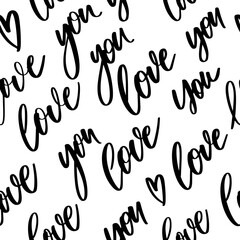 you you
love you
love love you
you love
love you love
love you